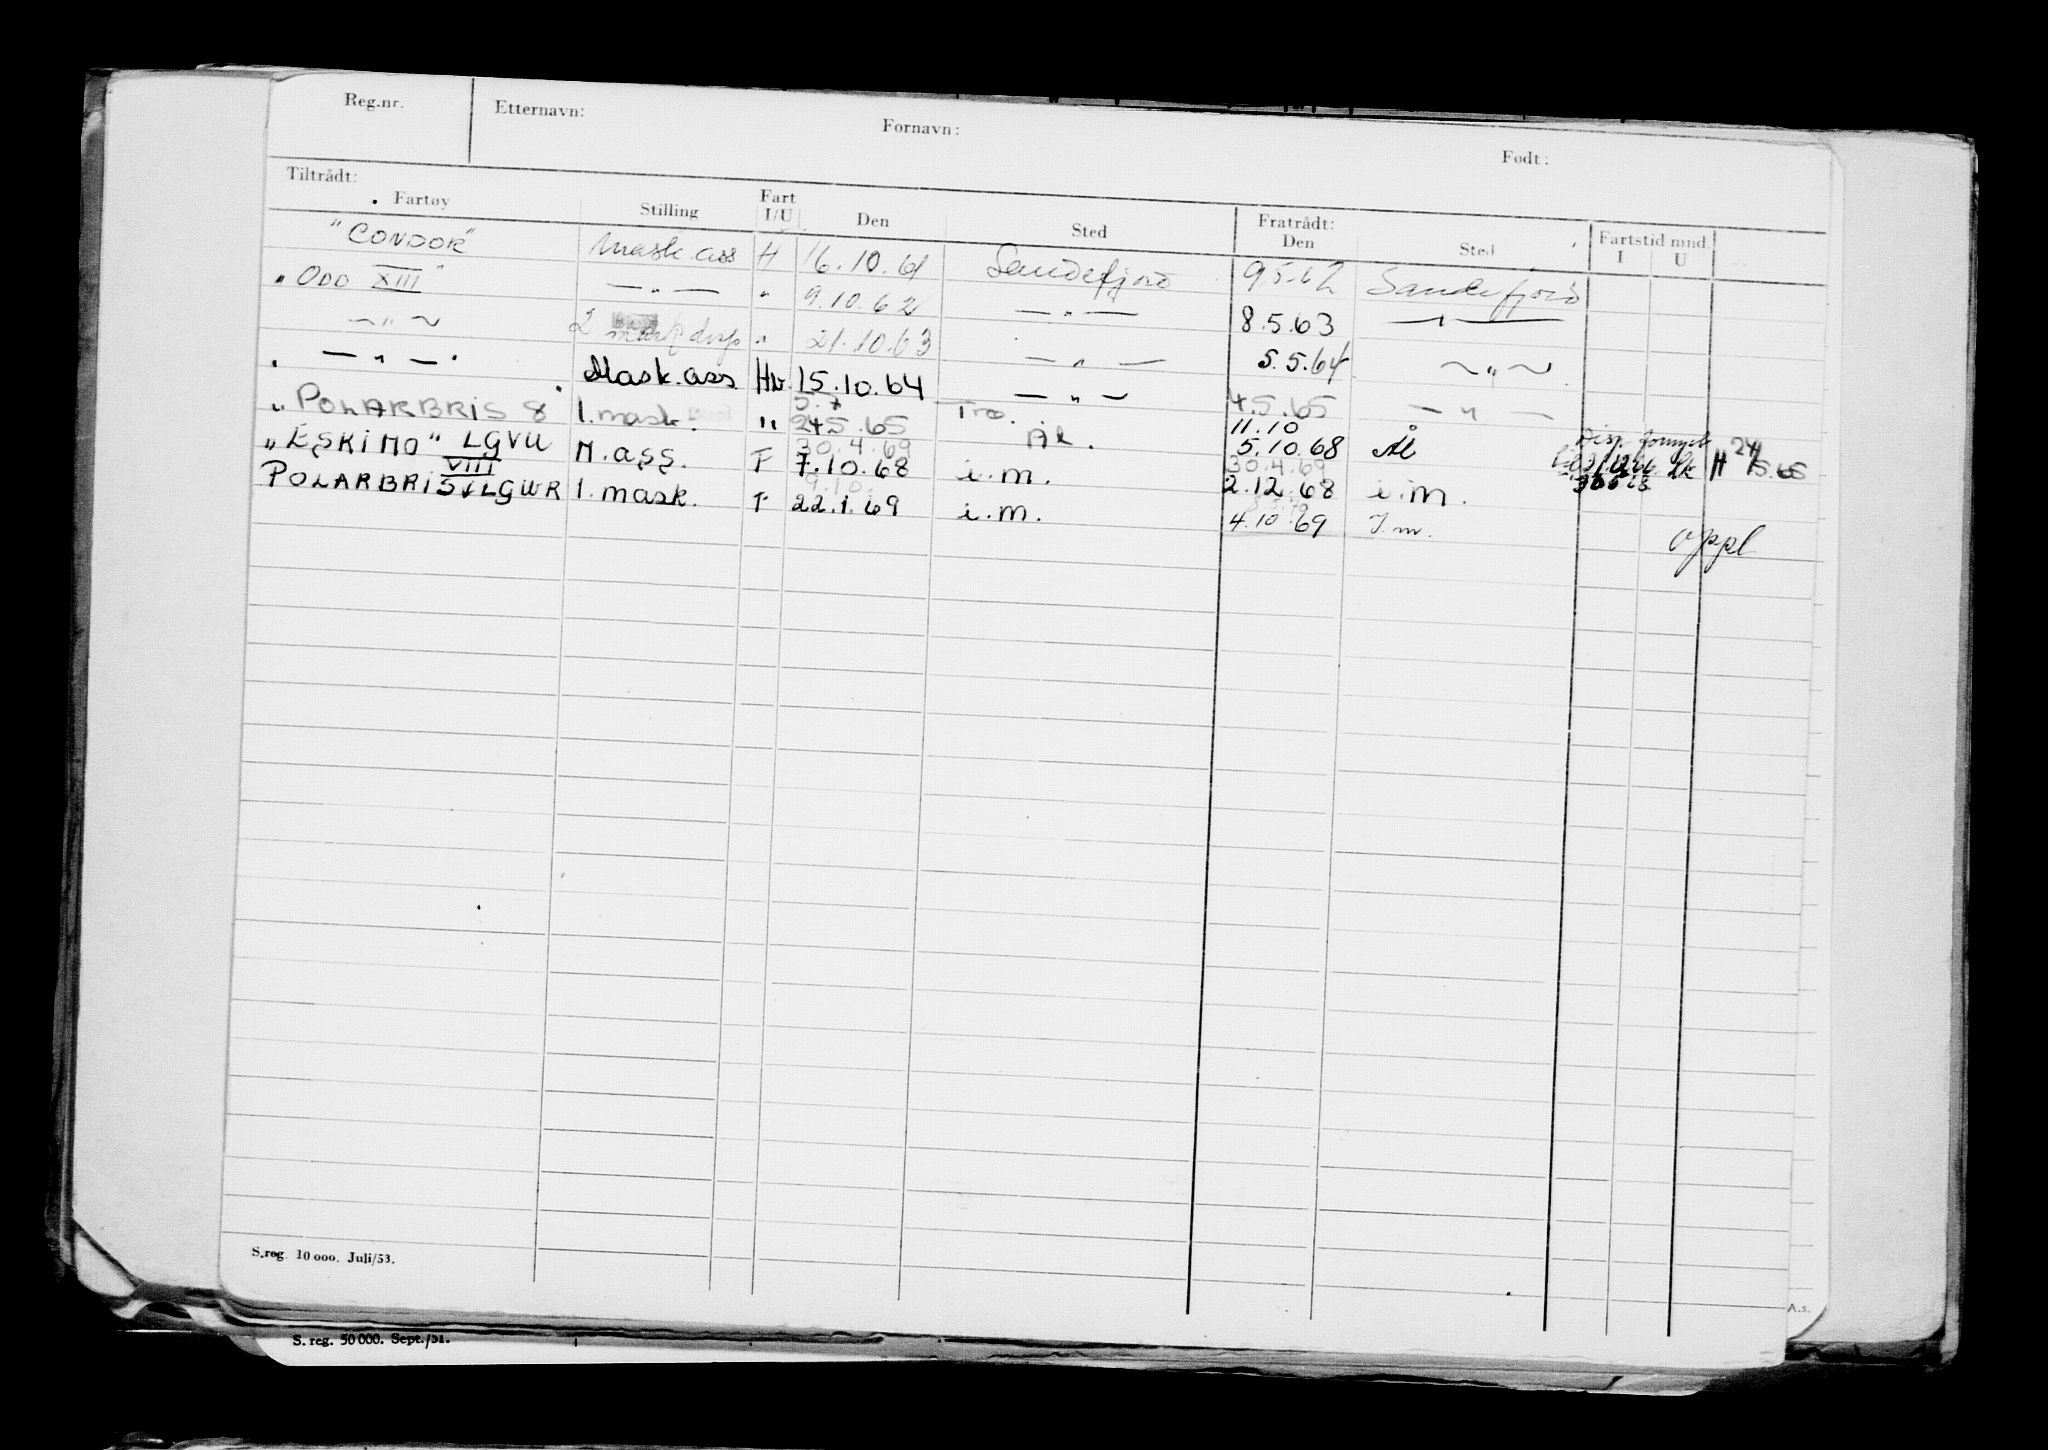 Reg.nr. Etternavn: Fornavn: Født:
Tiltrådt: Fartøy Stilling Fart I/U Den Sted Fratrådt: Den Sted Fartstid mnd. I U
"CONDOR" Mask.ass H 16.10.61 Sandefjord 9.5.62 Sandefjord
"ODD XIII" — " — " 9.10.62 — " — 8.5.63 — " —
— " — 2 mask " 21.10.63 — " — 5.5.64 — " —
— " — Mask.ass Hv. 15.10.64 — " — 4.5.65 — " —
5.7 11.10
"POLARBRIS 8 1. mask. " 24.5.65 Ål. 5.10.68 Ål Disp. fornyet H 24/5.65
30.4.69 30.4.69
"ESKIMO" LGVU M.ass. F 7.10.68 i.m. 2.12.68 i.m.
VIII 9.10.
POLARBRIS LGWR 1. mask. F 22.1.69 i.m. 4.10.69 I.m. oppl
S.reg. 10 000. Juli/53.
A.s.
S. reg. 50 000. Sept./51.